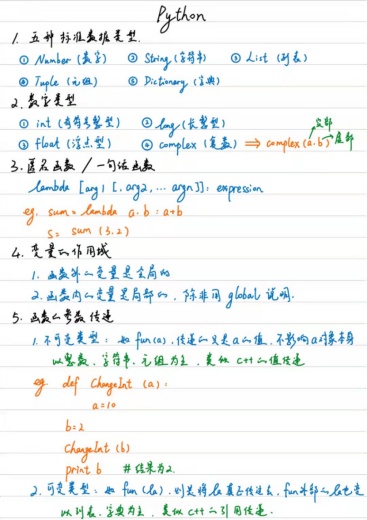 Python
1. 五种标准数据类型.
① Number (数字) ② String (字符串) ③ List (列表)
④ Tuple (元组) ⑤ Dictionary (字典)
2. 数字类型
① int (有符号整型) ② long (长整型) 实部
③ float (浮点型) ④ complex (复数) ⇒ complex(a.b) 虚部
3. 匿名函数 / 一句话函数
lambda [arg1 [, arg2, ... argn]]: expression
eg. sum = lambda a.b : a+b
S = sum (3.2)
4. 变量的作用域
1. 函数外的变量是全局的
2. 函数内的变量是局部的, 除非用 global 说明.
5. 函数的参数传递
1. 不可变类型: 如 fun(a), 传递的只是a的值, 不影响a对象本身
以整数、字符串、元组为主, 类似 C++ 的值传递
eg. def ChangeInt (a):
a=10
b=2
ChangeInt (b)
print b # 结果为2
2. 可变类型: 如 fun (la), 则是将la真正传过去, fun外部的la也变
以列表、字典为主, 类似 C++ 的引用传递.